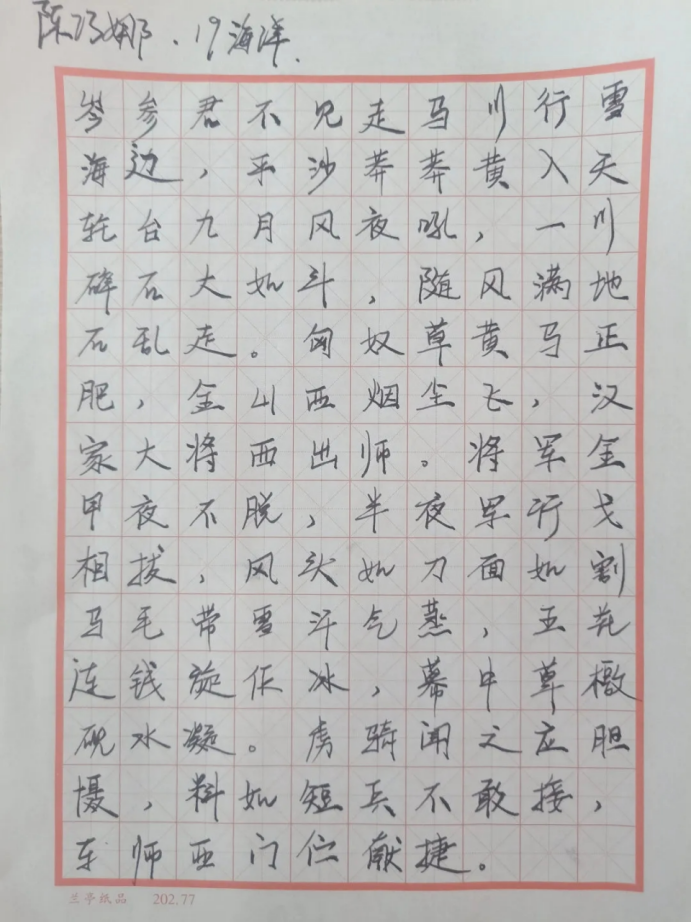 陈巧娜.19海洋.
岑参君不见走马川行雪
海边,平沙莽莽黄入天
轮台九月风夜吼,一川
碎石大如斗,随风满地
石乱走。匈奴草黄马正
肥,金山西烟尘飞,汉
家大将西出师。将军金
甲夜不脱,半夜军行戈
相拨,风头如刀面如割
马毛带雪汗气蒸,五花
连钱旋作冰,幕中草檄
砚水凝。虏骑闻之应胆
慑,料如短兵不敢接,
车师西门伫献捷。
兰亭纸品 202.77